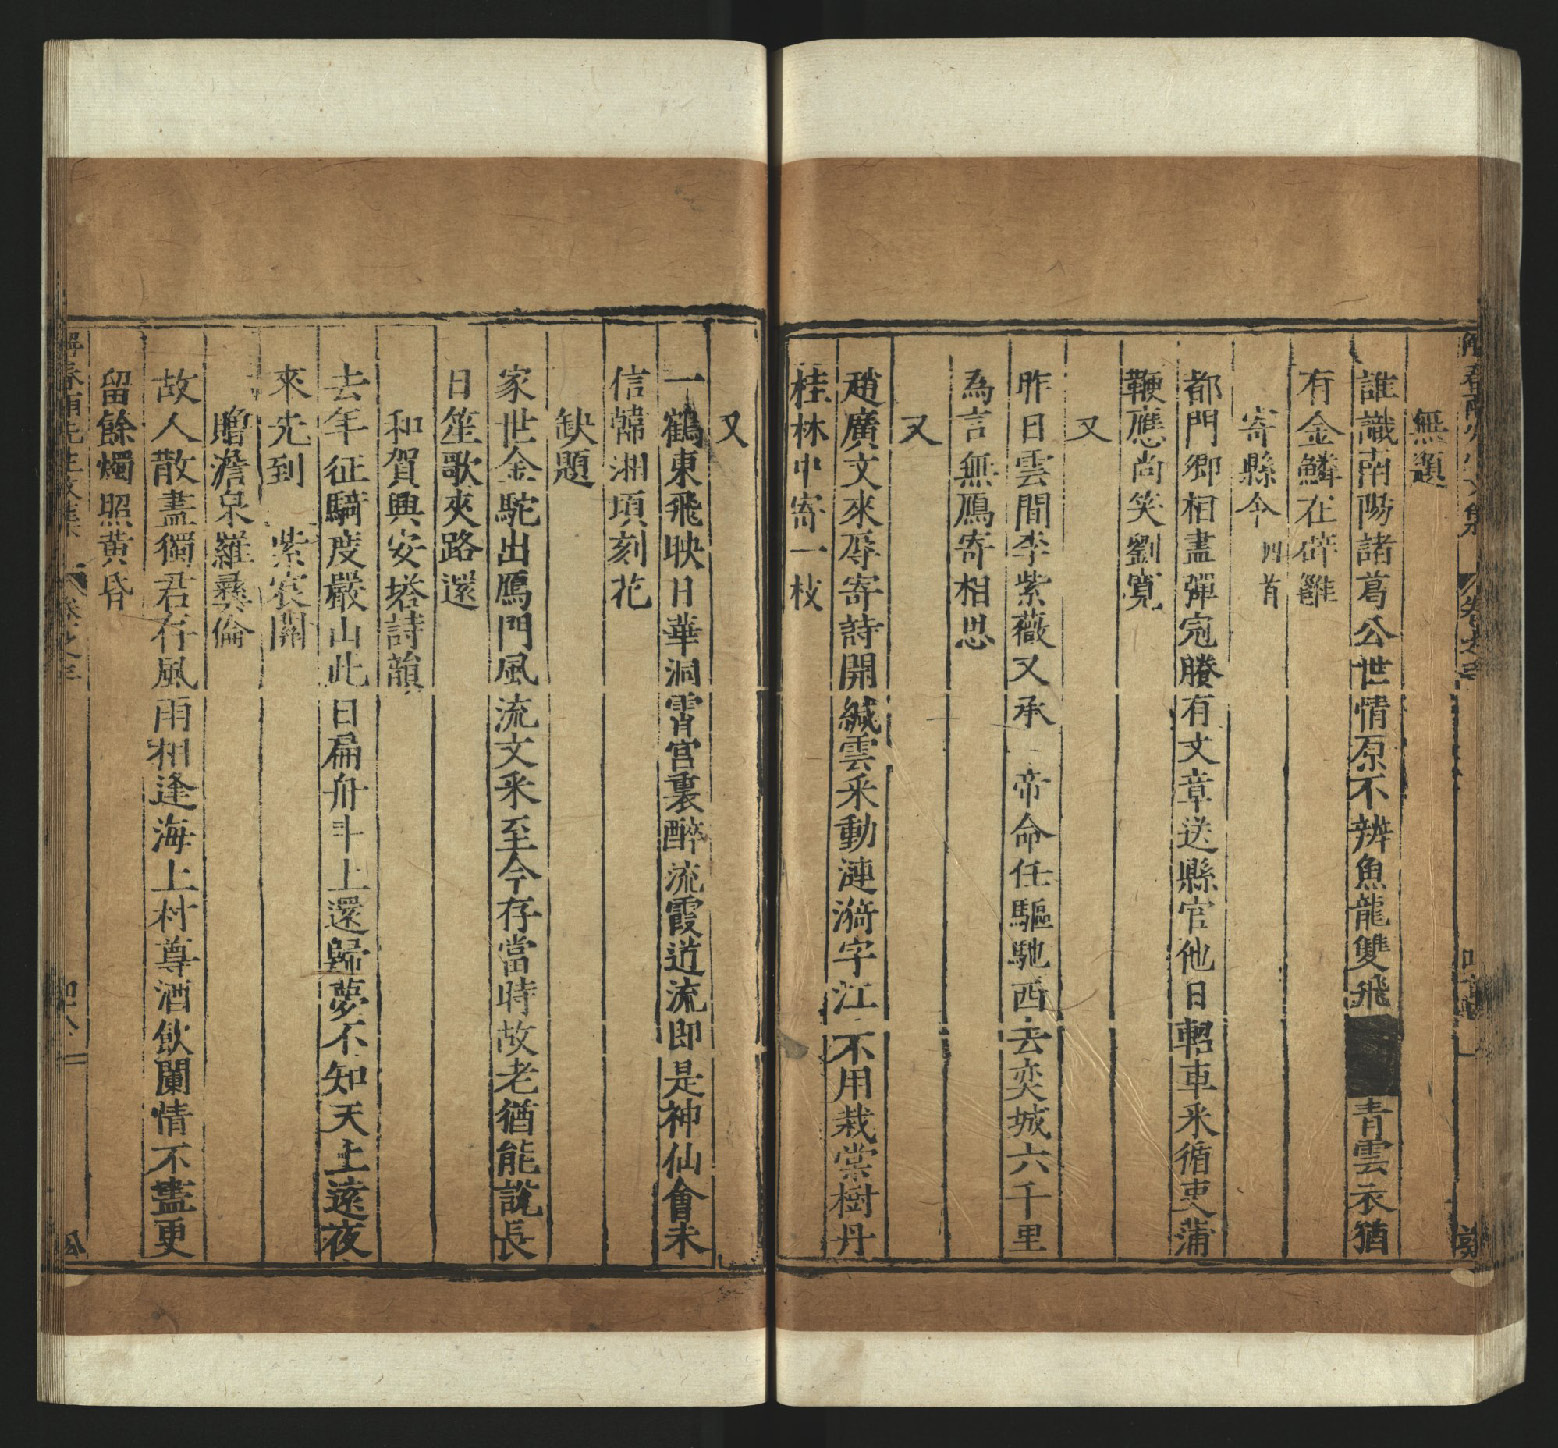 無題
誰識南陽諸葛公世情原不辨魚龍雙飛青雲衣猶
有金鱗在碎雝
寄縣令四首
都門鄉相盡彈冠賸有文章送縣官他日軺車釆循吏蒲
鞭應尚笑劉寬
又
昨日雲間李紫薇又承帝命任驅馳西去奕城六千里
為言無鴈寄相思
又
趙廣文來辱寄詩開緘雲釆動漣漪字江不用栽棠樹丹
桂林中寄一枝
又
一鶴東飛映日華洞霄宮裏醉流霞道流即是神仙會未
信韓湘頃刻花
缺題
家世金駝出鴈門風流文釆至今存當時故老猶能說長
日笙歌夾路還
和賀興安塔詩韻
去年征騎度嚴山此日扁舟斗上還歸夢不知天上遠夜
來先到紫宸關
贈澹泉羅彝倫
故人散盡獨君存風雨相逢海上村尊酒飲闌情不盡更
留餘燭照黃昏